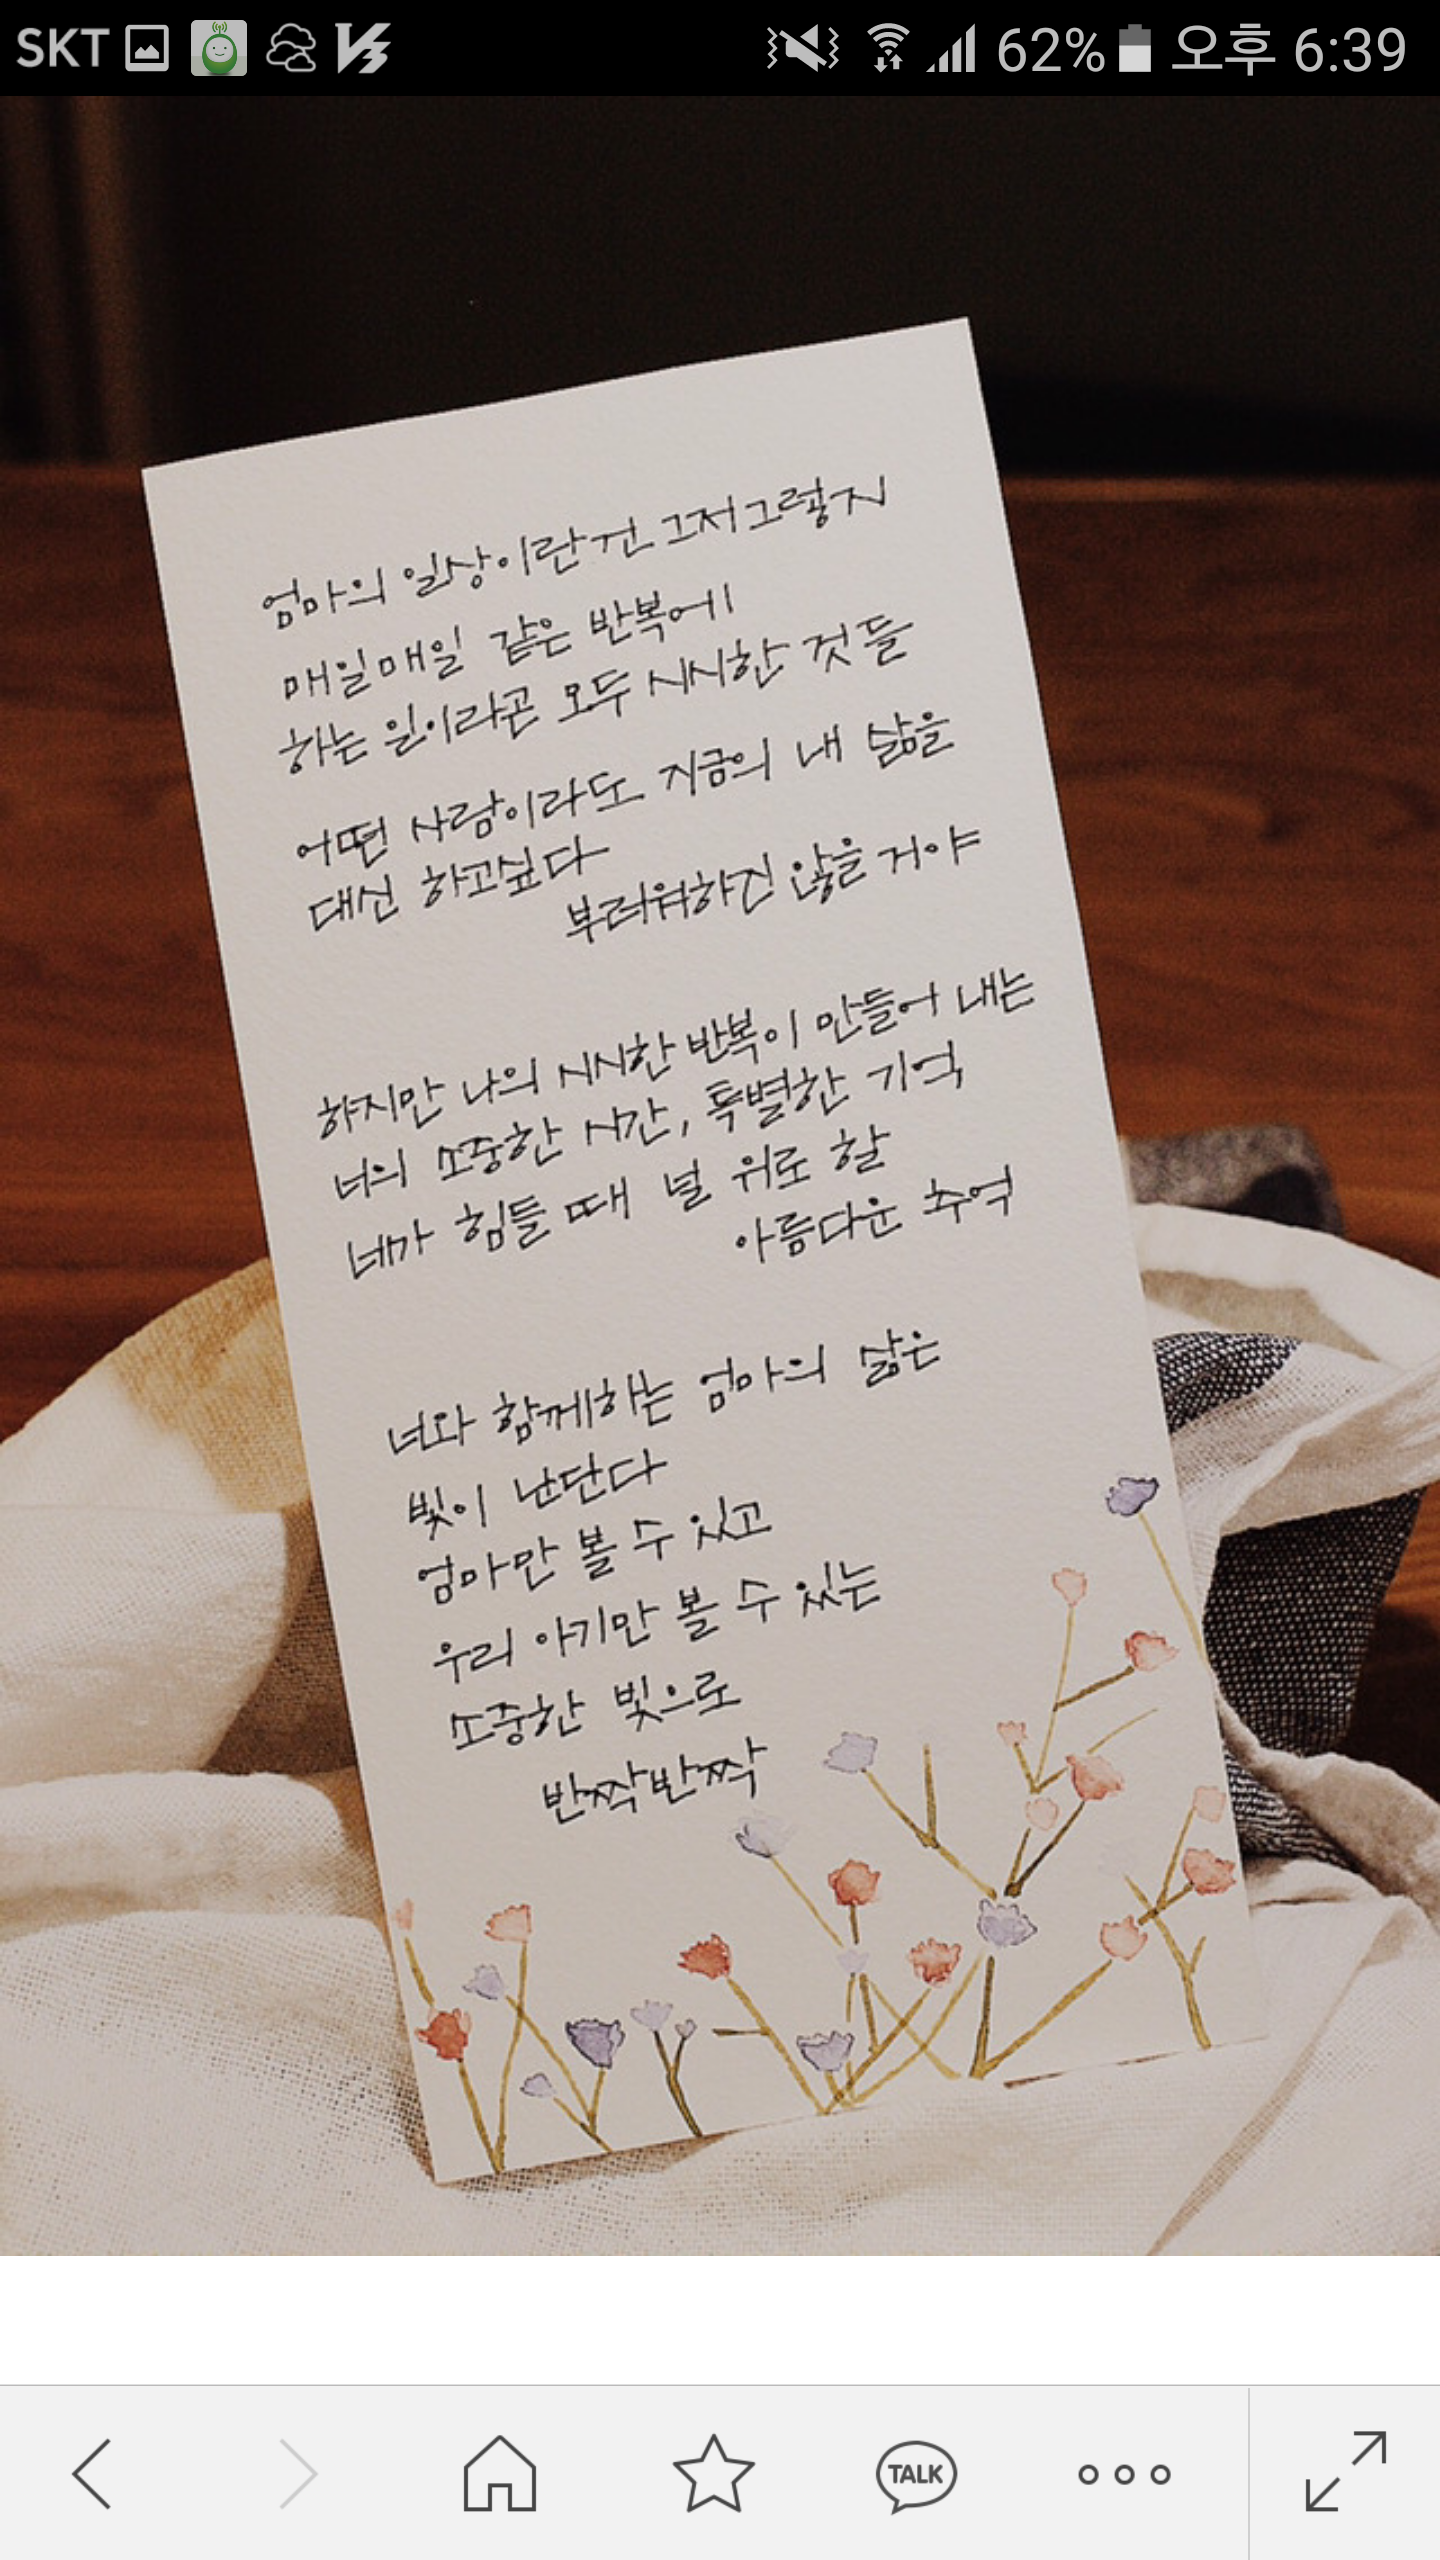 SKT 62% 오후 6:39
엄마의 일상이란 건 그저그렇지
매일매일 같은 반복에
하는 일이라곤 모두 시시한 것들
어떤 사람이라도 지금의 내 삶을
대신 하고싶다
부러워하진 않을거야
하지만 나의 시시한 반복이 만들어 내는
너의 소중한 시간, 특별한 기억
네가 힘들 때 널 위로 할
아름다운 추억
너와 함께하는 엄마의 삶은
빛이 난단다
엄마만 볼 수 있고
우리 아기만 볼 수 있는
소중한 빛으로
반짝반짝
TALK